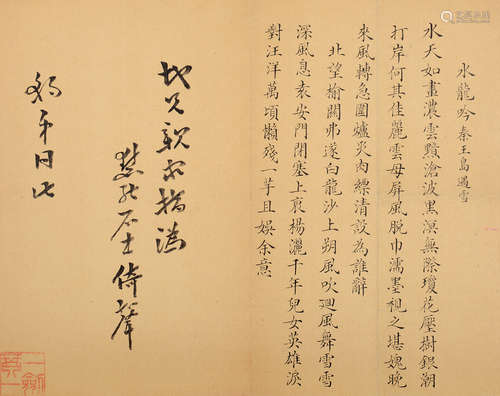 水龍吟秦王島遇雪
水天如畫濃雲黯滄波黑溟無際瓊花壓樹銀潮
打岸何其佳麗雲母屏風脫巾濡墨視之堪媿晚
來風轉急圍爐炙肉縹清設為誰辭
北望榆關弗遂白龍沙上朔風吹迴風舞雪雪
深風息袁安門閉塞上哀楊灑千年兒女英雄淚
對汪洋萬頃懶殘一芋且娛余意
兄親家指譌
居士倚聲
年同此